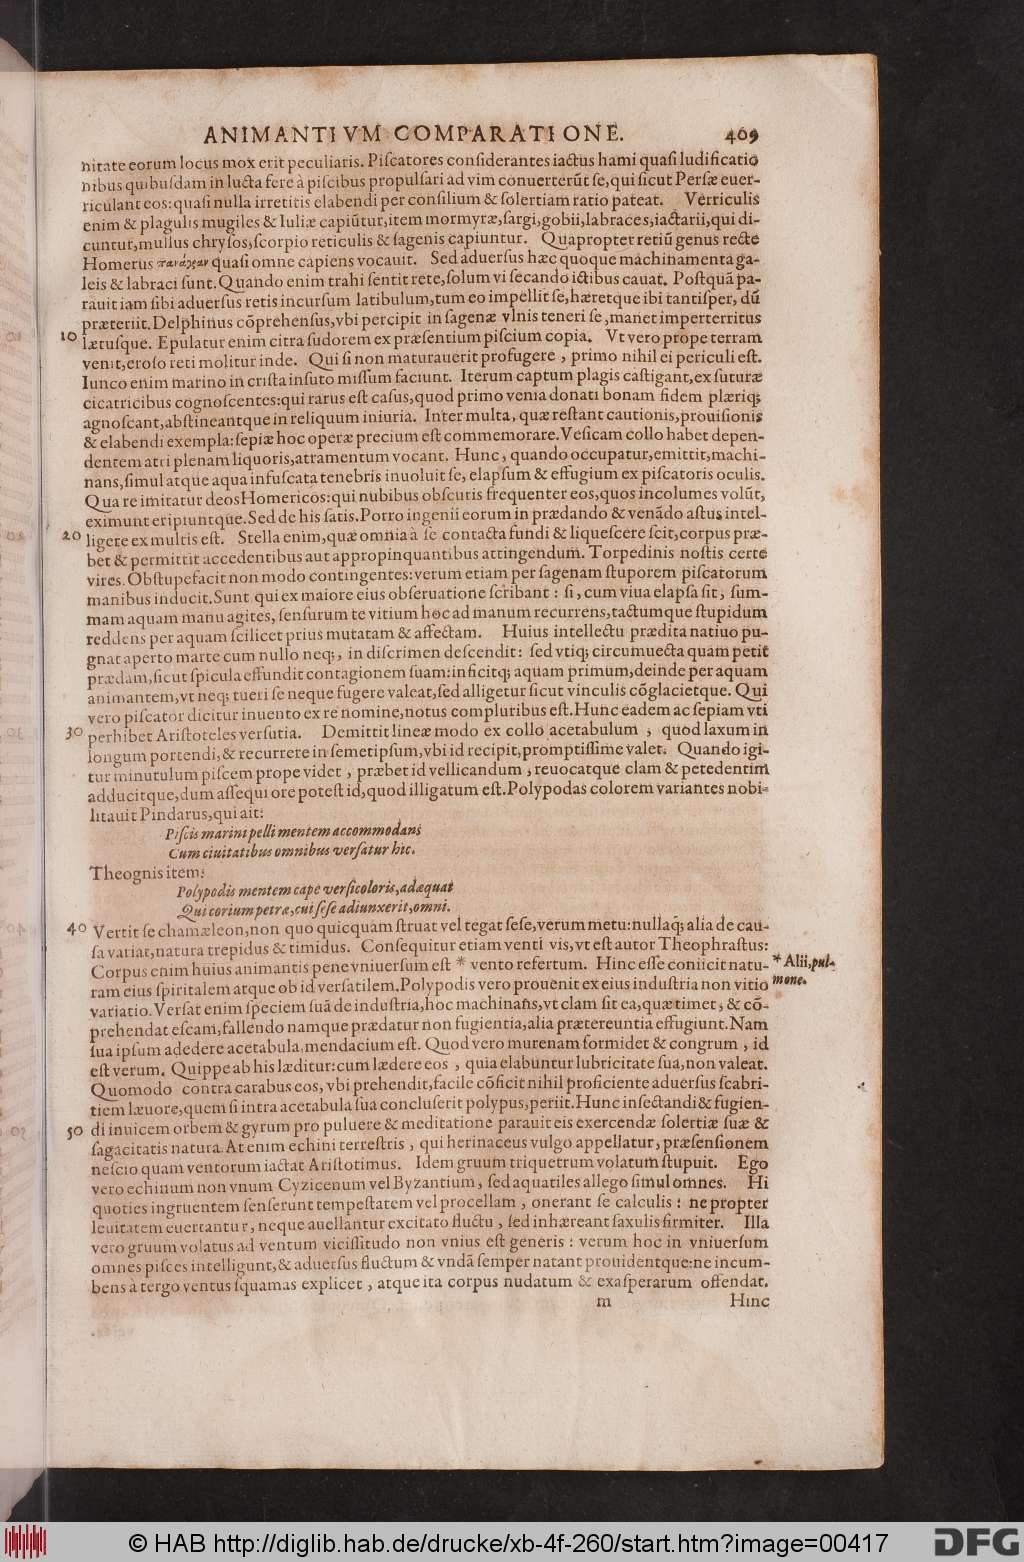 ANIMANTIVM COMPARATIONE. 469
nitate eorum locus mox erit peculiaris. Piſcatores conſiderantes iactus hami quaſi ludificatio
nibus quibuſdam in lucta fere à piſcibus propulſari ad vim conuerterūt ſe, qui ſicut Perſæ euer-
riculant eos: quaſi nulla irretitis elabendi per conſilium & ſolertiam ratio pateat. Verriculis
enim & plagulis mugiles & Iuliæ capiūtur, item mormyræ, ſargi, gobii, labraces, iactarii, qui di-
cuntur, mullus chryſos, ſcorpio reticulis & ſagenis capiuntur. Quapropter retiū genus recte
Homerus quaſi omne capiens vocauit. Sed aduerſus hæc quoque machinamenta ga-
leis & labraci ſunt. Quando enim trahi ſentit rete, ſolum vi ſecando ictibus cauat. Poſtquā pa-
rauit iam ſibi aduerſus retis incurſum latibulum, tum eo impellit ſe, hæretque ibi tantiſper, dū
præteriit. Delphinus cōprehenſus, vbi percipit in ſagenæ vlnis teneri ſe, manet imperterritus
10 lætuſque. Epulatur enim citra ſudorem ex præſentium piſcium copia. Vt vero prope terram
venit, eroſo reti molitur inde. Qui ſi non maturauerit profugere, primo nihil ei periculi eſt.
Iunco enim marino in criſta inſuto miſſum faciunt. Iterum captum plagis caſtigant, ex ſuturæ
cicatricibus cognoſcentes: qui rarus eſt caſus, quod primo venia donati bonam fidem plæriq;
agnoſcant, abſtineantque in reliquum iniuria. Inter multa, quæ reſtant cautionis, prouiſionis
& elabendi exempla: ſepiæ hoc operæ precium eſt commemorare. Veſicam collo habet depen-
dentem atri plenam liquoris, atramentum vocant. Hunc, quando occupatur, emittit, machi-
nans, ſimul atque aqua infuſcata tenebris inuoluit ſe, elapſum & effugium ex piſcatoris oculis.
Qua re imitatur deos Homericos: qui nubibus obſcuris frequenter eos, quos incolumes volūt,
eximunt eripiuntque. Sed de his ſatis. Porro ingenii eorum in prædando & venādo aſtus intel-
20 ligere ex multis eſt. Stella enim, quæ omnia à ſe contacta fundi & liqueſcere ſcit, corpus præ-
bet & permittit accedentibus aut appropinquantibus attingendum. Torpedinis noſtis certe
vires. Obſtupefacit non modo contingentes: verum etiam per ſagenam ſtuporem piſcatorum
manibus inducit. Sunt qui ex maiore eius obſeruatione ſcribant: ſi, cum viua elapſa ſit, ſum-
mam aquam manu agites, ſenſurum te vitium hoc ad manum recurrens, tactumque ſtupidum
reddens per aquam ſcilicet prius mutatam & affectam. Huius intellectu prædita natiuo pu-
gnat aperto marte cum nullo neq;, in diſcrimen deſcendit: ſed vtiq; circumuecta quam petit
prædam, ſicut ſpicula effundit contagionem ſuam: inficitq; aquam primum, deinde per aquam
animantem, vt neq; tueri ſe neque fugere valeat, ſed alligetur ſicut vinculis cōglacietque. Qui
vero piſcator dicitur inuento ex re nomine, notus compluribus eſt. Hunc eadem ac ſepiam vti
30 perhibet Ariſtoteles verſutia. Demittit lineæ modo ex collo acetabulum, quod laxum in
longum portendi, & recurrere in ſemetipſum, vbi id recipit, promptiſſime valet. Quando igi-
tur minutulum piſcem prope videt, præbet id vellicandum, reuocatque clam & petedentim
adducitque, dum aſſequi ore poteſt id, quod illigatum eſt. Polypodas colorem variantes nobi-
litauit Pindarus, qui ait:
Piſcis marini pelli mentem accommodans
Cum ciuitatibus omnibus verſatur hic.
Theognis item:
Polypodis mentem cape verſicoloris, adæquat
Qui corium petræ, cui ſeſe adiunxerit, omni.
40 Vertit ſe chamæleon, non quo quicquam ſtruat vel tegat ſeſe, verum metu: nullaq; alia de cau-
ſa variat, natura trepidus & timidus. Conſequitur etiam venti vis, vt eſt autor Theophraſtus:
Corpus enim huius animantis pene vniuerſum eſt * vento refertum. Hinc eſſe coniicit natu- * Alii, pul-
ram eius ſpiritalem atque ob id verſatilem. Polypodis vero prouenit ex eius induſtria non vitio mone.
variatio. Verſat enim ſpeciem ſuā de induſtria, hoc machinans, vt clam ſit ea, quæ timet, & cō-
prehendat eſcam, fallendo namque prædatur non fugientia, alia prætereuntia effugiunt. Nam
ſua ipſum adedere acetabula, mendacium eſt. Quod vero murenam formidet & congrum, id
eſt verum. Quippe ab his læditur: cum lædere eos, quia elabuntur lubricitate ſua, non valeat.
Quomodo contra carabus eos, vbi prehendit, facile cōficit nihil proficiente aduerſus ſcabri-
tiem læuore, quem ſi intra acetabula ſua concluſerit polypus, periit. Hunc inſectandi & fugien-
50 di inuicem orbem & gyrum pro puluere & meditatione parauit eis exercendæ ſolertiæ ſuæ &
ſagacitatis natura. At enim echini terreſtris, qui herinaceus vulgo appellatur, præſenſionem
neſcio quam ventorum iactat Ariſtotimus. Idem gruum triquetrum volatum ſtupuit. Ego
vero echinum non vnum Cyzicenum vel Byzantium, ſed aquatiles allego ſimul omnes. Hi
quoties ingruentem ſenſerunt tempeſtatem vel procellam, onerant ſe calculis: ne propter
leuitatem euertantur, neque auellantur excitato fluctu, ſed inhæreant ſaxulis firmiter. Illa
vero gruum volatus ad ventum viciſſitudo non vnius eſt generis: verum hoc in vniuerſum
omnes piſces intelligunt, & aduerſus fluctum & vndā ſemper natant prouidentque: ne incum-
bens à tergo ventus ſquamas explicet, atque ita corpus nudatum & exaſperarum offendat.
m Hinc
© HAB http://diglib.hab.de/drucke/xb-4f-260/start.htm?image=00417
DFG